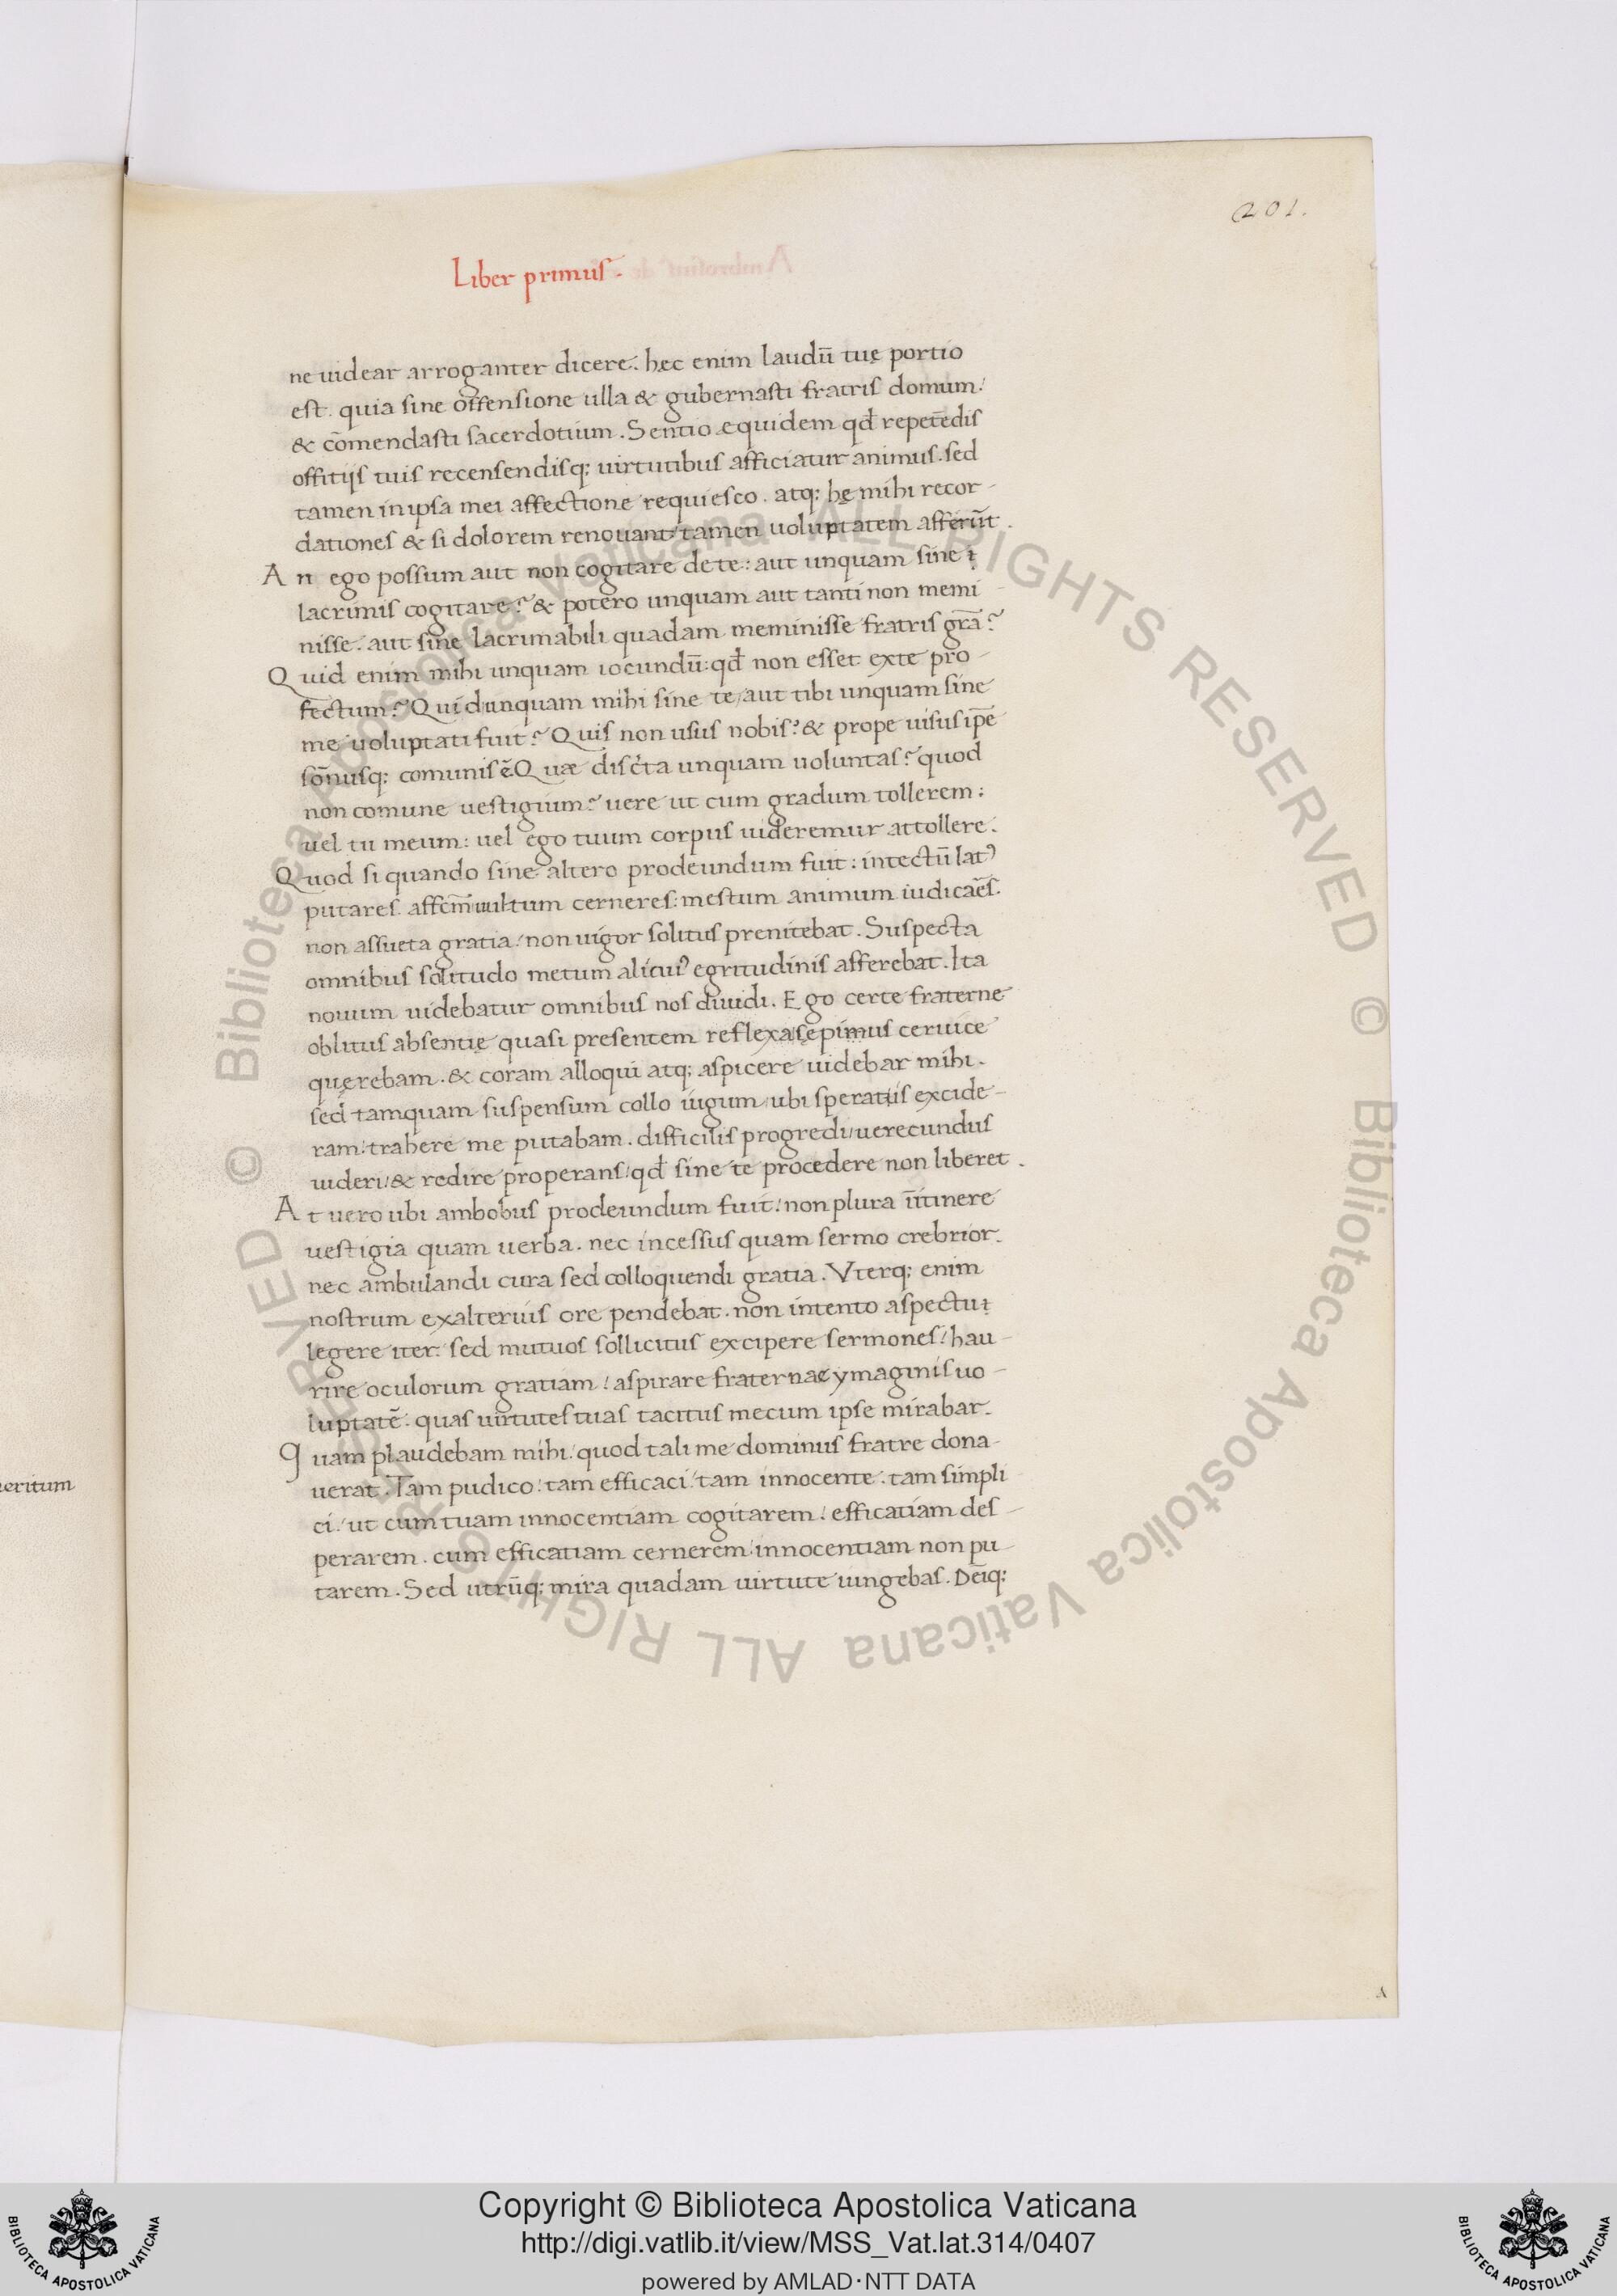 201.
Liber primus.
ne uidear arroganter dicere. hęc enim laudū tuę portio
est. quia sine offensione ulla & gubernasti fratris domum.
& cōmendasti sacerdotium. Sentio equidem qđ repetēdis
offitijs tuis recensendisq; uirtutibus afficiatur animus. sed
tamen in ipsa mei affectione requiesco. atq; hę mihi recor-
dationes & si dolorem renouant tamen uoluptatem afferūt.
An ego possum aut non cogitare de te: aut unquam sine
lacrimis cogitare? & potero unquam aut tanti non memi
nisse. aut sine lacrimabili quadam meminisse fratris grā?
Quid enim mihi unquam iocundū: qđ non esset ex te pro-
fectum? Quid unquam mihi sine te, aut tibi unquam sine
me uoluptati fuit? Quis non usus nobis? & prope uisus ipē
sōnusq; comunis ē Quæ discͨta unquam uoluntas? quod
non comune uestigium? uere ut cum gradum tollerem:
uel tu meum: uel ego tuum corpus uideremur attollere.
Quod si quando sine altero prodeundum fuit: intectū lat9
putares. uultum cerneres: mestum animum iudicaēs.
non assueta gratia. non uigor solitus prenitebat. Suspecta
omnibus solitudo metum alicui9 egritudinis afferebat. Ita
nouum uidebatur omnibus nos diuidi. Ego certe fraterne
oblitus absentię quasi presentem reflexa sepimus ceruice
quęrebam. & coram alloqui atq; aspicere uidebar mihi.
sed tamquam suspensum collo iugum ubi speratis excide-
ram. trahere me putabam. difficilis progredi, uerecundus
uideri, & redire properans, qđ sine te procedere non liberet.
At uero ubi ambobus prodeundum fuit. non plura ītinere
uestigia quam uerba. nec incessus quam sermo crebrior.
nec ambulandi cura sed colloquendi gratia. Vterq; enim
nostrum ex alterius ore pendebat. non intento aspectu
legere iter. sed mutuos sollicitus excipere sermones. hau-
rire oculorum gratiam. aspirare fraternae ymaginis uo-
luptatē. quas uirtutes tuas tacitus mecum ipse mirabar.
Quam plaudebam mihi. quod tali me dominus fratre dona-
uerat. Tam pudico. tam efficaci. tam innocente. tam simpli
ci. ut cum tuam innocentiam cogitarem. efficatiam des-
perarem. cum efficatiam cernerem innocentiam non pu
tarem. Sed utrūq; mira quadam uirtute iungebas. Deīq;
eritum
© Biblioteca Apostolica Vaticana ALL RIGHTS RESERVED © Biblioteca Apostolica Vaticana ALL RIGHTS RESERVED
BIBLIOTECA APOSTOLICA VATICANA
Copyright © Biblioteca Apostolica Vaticana
http://digi.vatlib.it/view/MSS_Vat.lat.314/0407
powered by AMLAD·NTT DATA
BIBLIOTECA APOSTOLICA VATICANA